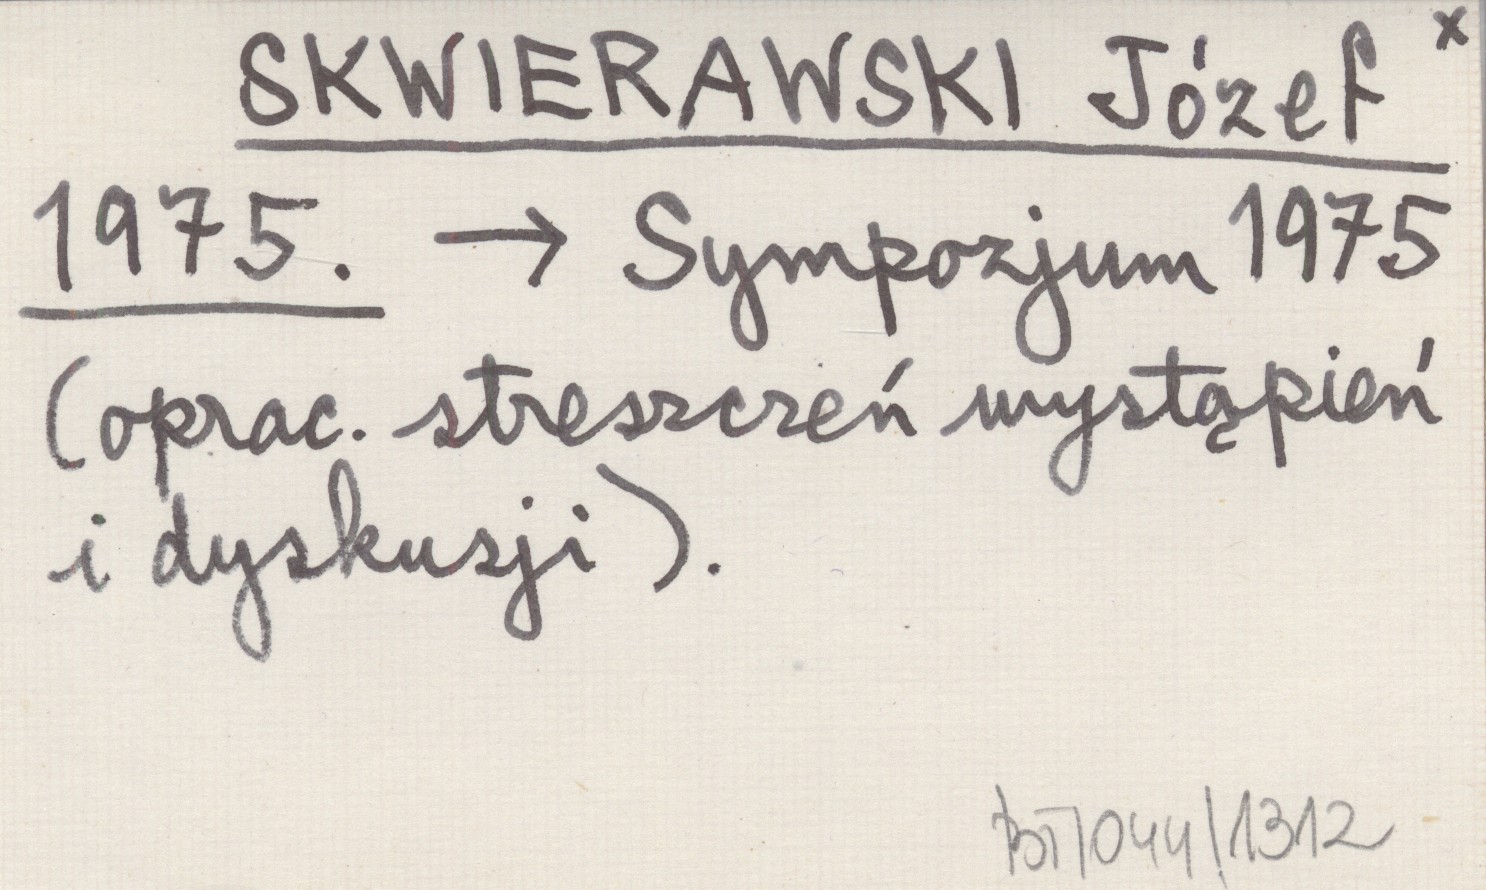 SKWIERAWSKI Józef x
1975. → Sympozjum 1975
(oprac. streszczeń wystąpień
i dyskusji).
BT/044/1312